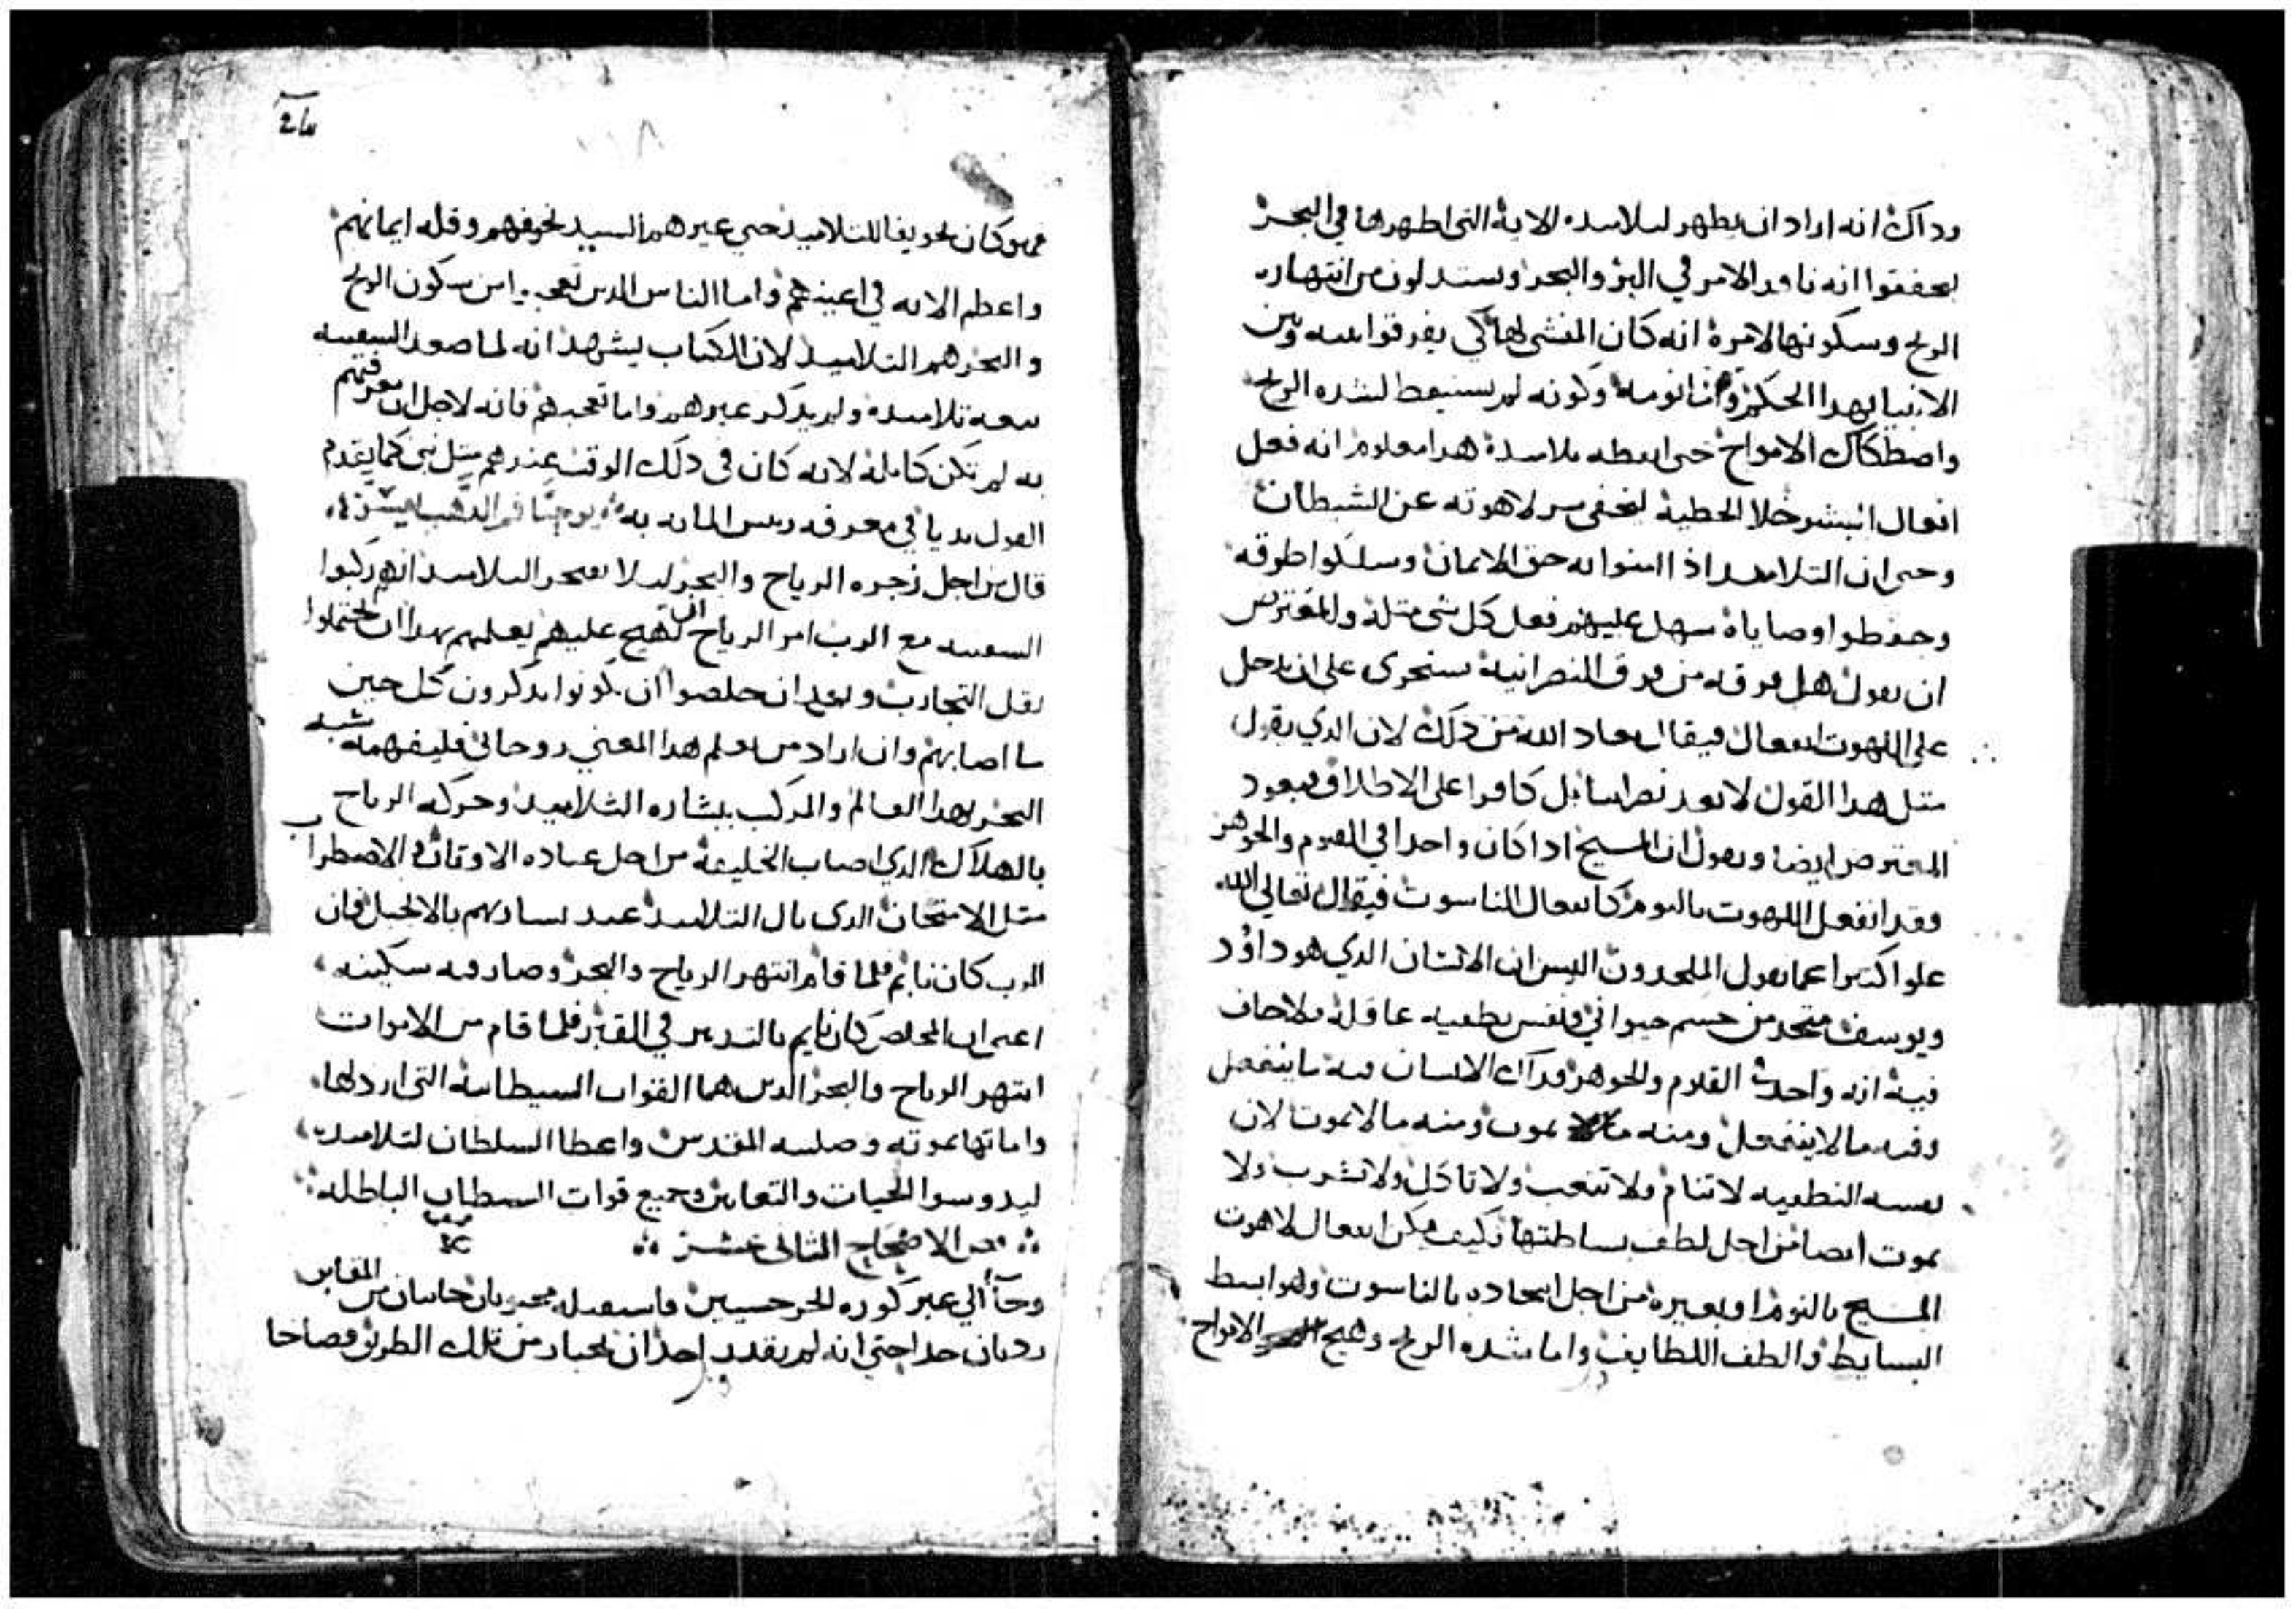 وداك انه اراد ان يظهر لتلاميده الاية التي اظهرها في البحر
ليحققوا انه نافد الامر في البر والبحر ويستدلون من انتهاره
الريح وسكونها لامره انه كان المنشي لها كي يفرقوا بينه وبين
الانبيا بهدا الحكم وان نومه وكونه لم يستيقظ لشده الريح
واصطكاك الامواج حتى ايقظه تلاميدة هدا معلوم انه فعل
افعال البشر خلا الخطية ليخفى سر لاهوته عن الشيطان
وحتى ان التلاميد اذا امنوا به حق الايمان وسلكوا طرقه
وحفظوا وصاياه سهل عليهم فعل كل شي مثله والمفترض
ان يقول هل فرقه من فرق النصرانية ستجرى على ان يدخل
على اللاهوت انفعال فيقال معاد الله من دلك لان الدي يقول
مثل هدا القول لا يعد نصرانيا بل كافرا على الاطلاق فيعود
المعترض ايضا ويقول ان المسيح ادا كان واحدا في القنوم والجوهر
فقد انفعل اللهوت بالنوم كانفعال الناسوت فيقال تعالى الله
علوا كبيرا عما يقول الملحدون اليس ان الانسان الدي هو داوود
ويوسف متحد من جسم حيواني ونفس نطقيه عاقلة فلا خاف
فية انه واحد القنوم والجوهر وداك الانسان فيه ما ينفعل
وفيه ما لا ينفعل ومنه ما يموت ومنه ما لا يموت لان
نفسه النطقيه لا تنام ولا تتعب ولا تاكل ولا تشرب ولا
تموت ايضا من اجل لطف بساطتها فكيف يمكن انفعال لاهوت
المسيح بالنوم او بغيره من اجل اتحاده بالناسوت وهو ابسط
البسايط والطف اللطايف واما شده الريح وهيج الامواج
فهو كان تخويفا للتلاميد حتى عيرهم السيد لخوفهم وقله ايمانهم
واعظم الايه في اعينهم واما الناس الدين تعجبوا من سكون الريح
والبحر هم التلاميد لان الكتاب يشهد انه لما صعد السفينه
تبعه تلاميده ولم يدكر غيرهم واما تعجبهم فانه لاجل ان معرفتهم
به لم تكن كاملة لانه كان في دلك الوقت عندهم مثل نبي كما يقدم
القول بديا في معرفه ريس المايه به يوحنا فم الدهب يفسر
قال من اجل زجره الرياح والبحر ليلا يفتخر التلاميد انهم ركبوا
السفينه مع الرب امر الرياح ان تهيج عليهم يعلمهم بهدا ان يحتملوا
ثقل التجارب وبعد ان خلصوا ان يكونوا يدكرون كل حين
ما اصابهم وان اراد من يعلم هدا المعني روحاني فليفهمه شبه
البحر بهدا العالم والمركب ببشاره التلاميد وحركه الرياح
بالهلاك الدي اصاب الخليقة من اجل عباده الاوتان والاضطراب
مثل الامتحان الدى نال التلاميد عند بشارتهم بالانجيل فان
الرب كان نايم فلما قام انتهر الرياح والبحر وصار فيه سكينه
اعنى ان المخلص كان نايم بالتدبير في القبر فلما قام من الاموات
انتهر الرياح والبحر الدين هما القوات الشيطانية التى اردلها
واماتها بموته وصليبه المقدس واعطا السلطان لتلاميده
ليدوسوا الحيات والتعابين وجميع قوات الشيطان الباطله
نص الاصحاح الثاني عشر
وجاء الي عبر كوره الجرجسيين فاستقبله مجنونان خارجان من المقابر
رديان جدا حتي انه لم يقدر احد ان يجتاز من تلك الطريق فصاحا